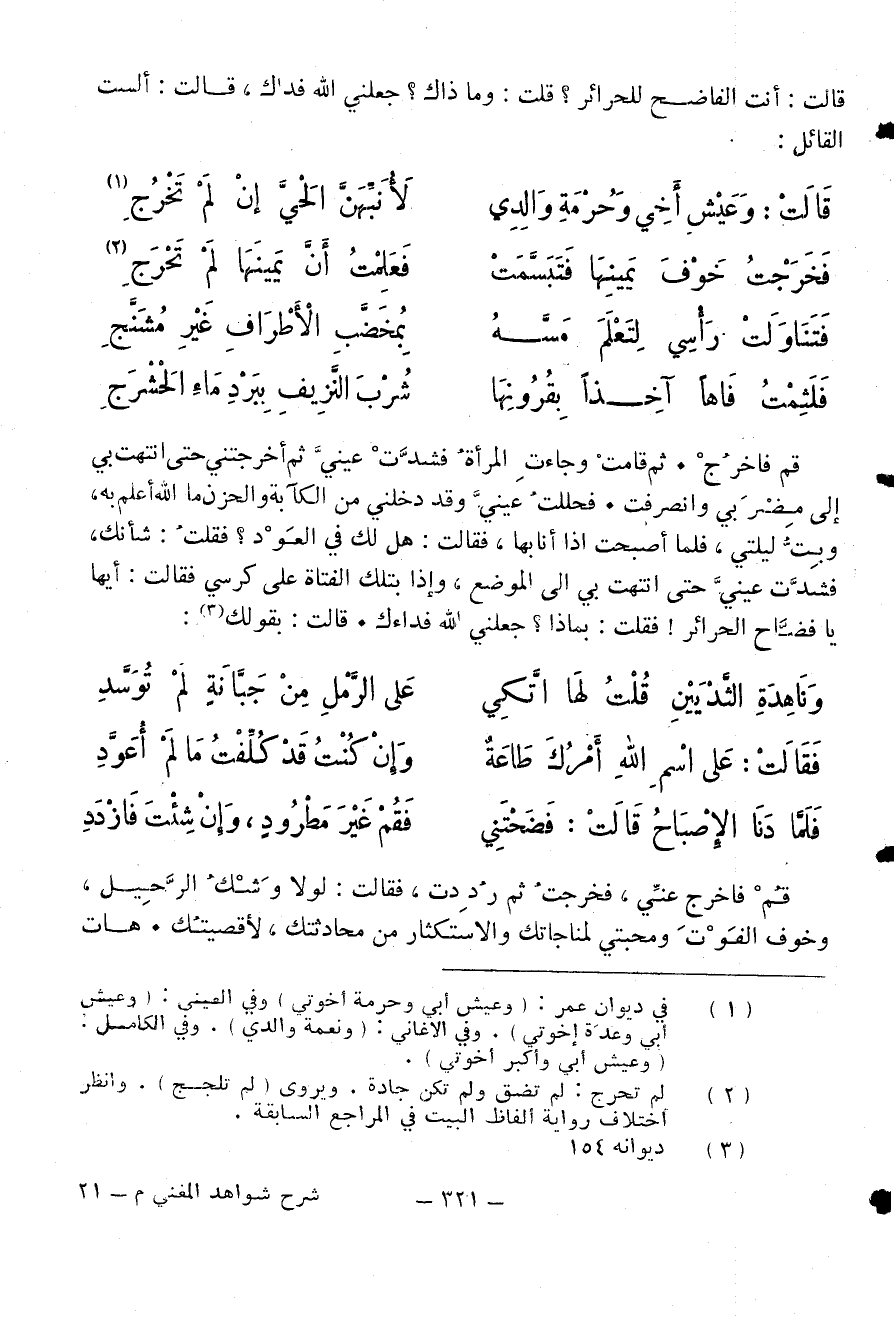 قالت : أنت الفاضـــح للحرائر ؟ قلت : وما ذاك ؟ جعلني الله فداك ، قـــالت : ألست
القائل :
قَالَتْ : وَعَيْشِ أَخِي وَحُرْمَةِ وَالِدِي لَأُنَبِّهَنَّ الْحَيَّ إِنْ لَمْ تَخْرُجِ (١)
فَخَرَجْتُ خَوْفَ يَمِينِهَا فَتَبَسَّمَتْ فَعَلِمْتُ أَنَّ يَمِينَهَا لَمْ تَحْرَجِ (٢)
فَتَنَاوَلَتْ رَأْسِي لِتَعْلَمَ مَسَّـــهُ بِمُخَضَّبِ الْأَطْرَافِ غَيْرِ مُشَنَّجِ
فَلَثِمْتُ فَاهاً آخِـــذاً بِقُرُونِهَا شُرْبَ النَّزِيفِ بِبَرْدِ مَاءِ الْحَشْرَجِ
قم فاخرُجْ • ثم قامتْ وجاءتِ المرأةُ فشدَّتْ عينيَّ ثم أخرجتني حتى انتهت بي
إلى مِضْرَبي وانصرفت • فحللتُ عينيَّ وقد دخلني من الكآبة والحزن ما الله أعلم به،
وبِتُّ ليلتي ، فلما أصبحت اذا أنابها ، فقالت : هل لك في العَوْد ؟ فقلتُ : شأنك،
فشدَّت عينيَّ حتى انتهت بي الى الموضع ، وإذا بتلك الفتاة على كرسي فقالت : أيها
يا فضَّاح الحرائر ! فقلت : بماذا ؟ جعلني الله فداءك • قالت : بقولك (٣) :
وَنَاهِدَةِ الثَّدْيَيْنِ قُلْتُ لَهَا اتَّكِي عَلَى الرَّمْلِ مِنْ جَبَّانَةٍ لَمْ تُوَسَّدِ
فَقَالَتْ : عَلَى اسْمِ اللهِ أَمْرُكَ طَاعَةٌ وَإِنْ كُنْتُ قَدْ كُلِّفْتُ مَا لَمْ أُعَوَّدِ
فَلَمَّا دَنَا الإِصْبَاحُ قَالَتْ : فَضَحْتَنِي فَقُمْ غَيْرَ مَطْرُودٍ ، وَإِنْ شِئْتَ فَازْدَدِ
قُمْ فاخرج عنّي ، فخرجتُ ثم رُدِدت ، فقالت : لولا وَشْكُ الرَّحيـــل ،
وخوف الفَوْتَ ومحبتي لمناجاتك والاستكثار من محادثتك ، لأقصيتُك • هـــات
(١) في ديوان عمر : ( وعيش أبي وحرمة أخوتي ) وفي العيني : ( وعيش
أبي وعدّة إخوتي ) . وفي الاغاني : ( ونعمة والدي ) . وفي الكامل :
( وعيش أبي وأكبر أخوتي ) .
(٢) لم تحرج : لم تضق ولم تكن جادة . ويروى ( لم تلجـــج ) . وانظر
أختلاف رواية ألفاظ البيت في المراجع السابقة .
(٣) ديوانه ١٥٤
– ٣٢١ – شرح شواهد المغني م – ٢١